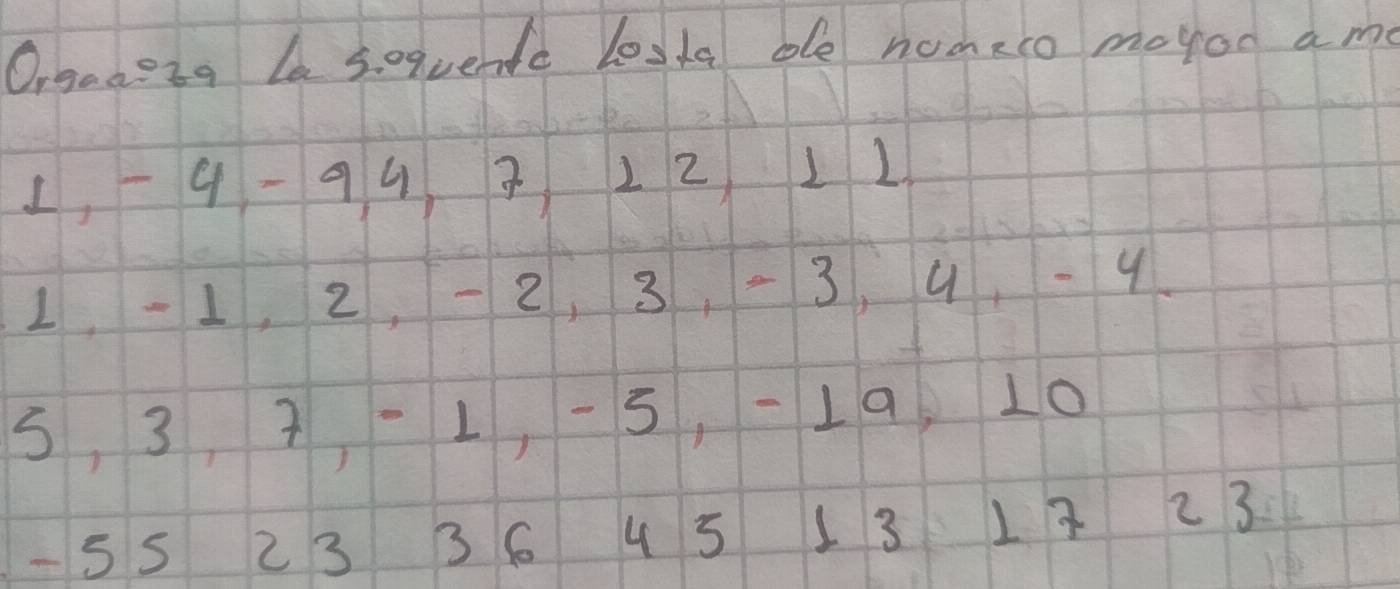 Organiza la siguiente lista de numero mayor a me
1, -4, -9, 4, 7, 12, 11.
1, -1, 2, -2, 3, -3, 4, -4.
5, 3, 7, -1, -5, -19, 10
-55 23 36 45 13 17 23